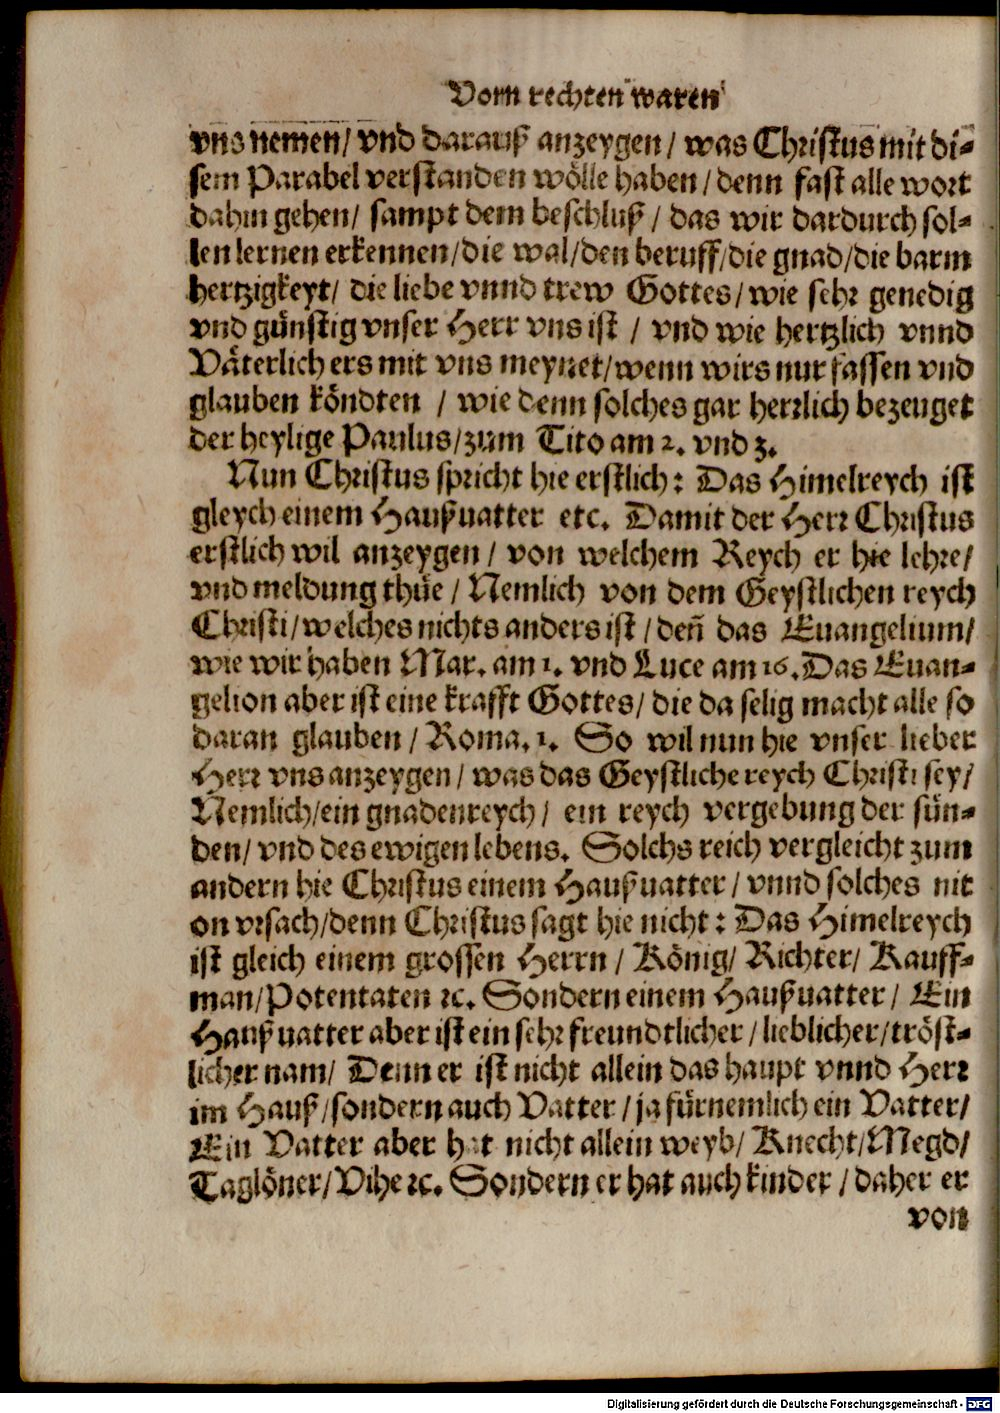 Vom rechten waren
vns nemen/ vnd darauß anzeygen/ was Christus mit di-
sem Parabel verstanden wölle haben/ denn fast alle wort
dahin gehen/ sampt dem beschluß/ das wir dardurch sol-
len lernen erkennen/die wal/den beruff/die gnad/die barm
hertzigkeyt/ die liebe vnnd trew Gottes/ wie sehr genedig
vnd günstig vnser Herr vns ist / vnd wie hertzlich vnnd
Väterlich ers mit vns meynet/wenn wirs nur fassen vnd
glauben köndten / wie denn solches gar herrlich bezeuget
der heylige Paulus/zum Tito am 2. vnd 3.
Nun Christus spricht hie erstlich: Das Himelreych ist
gleych einem Haußuatter etc. Damit der Herr Christus
erstlich wil anzeygen/ von welchem Reych er hie lehre/
vnd meldung thüe/ Nemlich von dem Geystlichen reych
Christi/welches nichts anders ist/ deñ das Euangelium/
wie wir haben Mar. am 1. vnd Luce am 16. Das Euan-
gelion aber ist eine krafft Gottes/ die da selig macht alle so
daran glauben/ Roma. 1. So wil nun hie vnser lieber
Herr vns anzeygen/ was das Geystliche reych Christi sey/
Nemlich/ein gnadenreych/ ein reych vergebung der sün-
den/ vnd des ewigen lebens. Solchs reich vergleicht zum
andern hie Christus einem Haußuatter/ vnnd solches nit
on vrsach/denn Christus sagt hie nicht: Das Himelreych
ist gleich einem grossen Herrn/ König/ Richter/ Kauff-
man/Potentaten ꝛc. Sondern einem Haußuatter/ Ein
Haußuatter aber ist ein sehr freundtlicher/ lieblicher/tröst-
licher nam/ Denn er ist nicht allein das haupt vnnd Herr
im Hauß/sondern auch Vatter/ ja fürnemlich ein Vatter/
Ein Vatter aber hat nicht allein weyb/ Knecht/Megd/
Taglöner/Vihe ꝛc. Sondern er hat auch kinder/ daher er
von
Digitalisierung gefördert durch die Deutsche Forschungsgemeinschaft - DFG